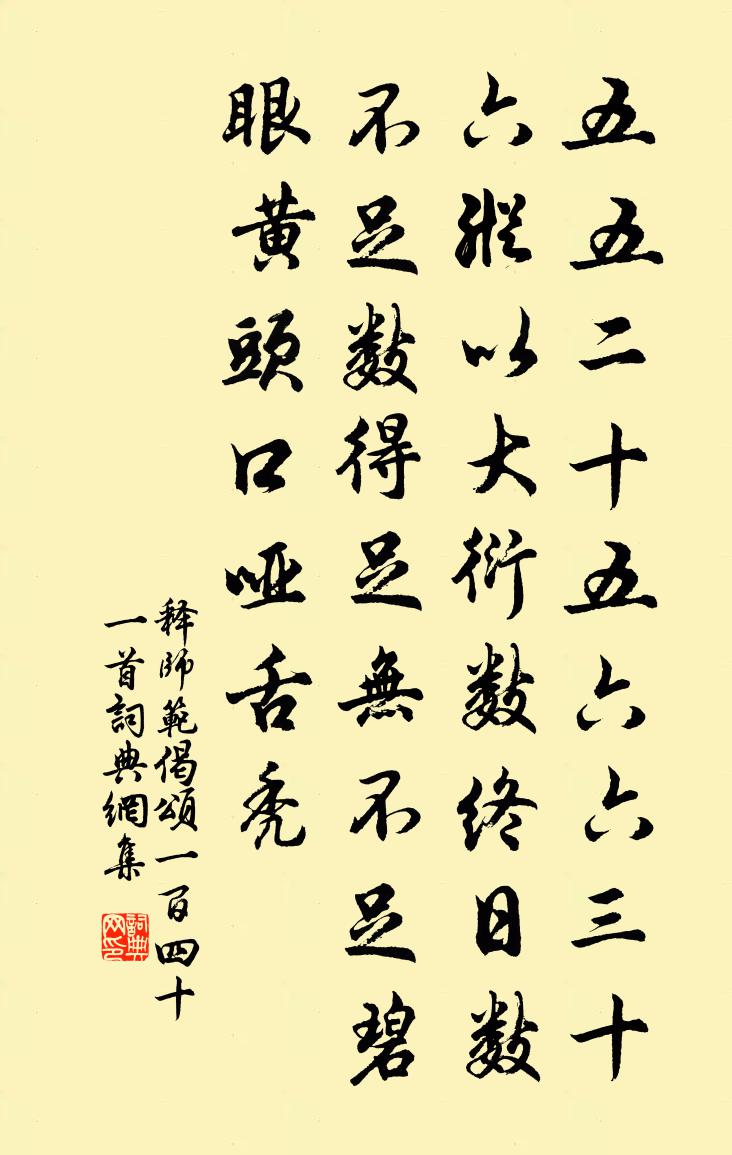 五五二十五六六三十
六縱以大衍數終日數
不足數得足無不足碧
眼黃頭口啞舌禿
释師範偈頌一百四十
一首詞典網集
詞典网印